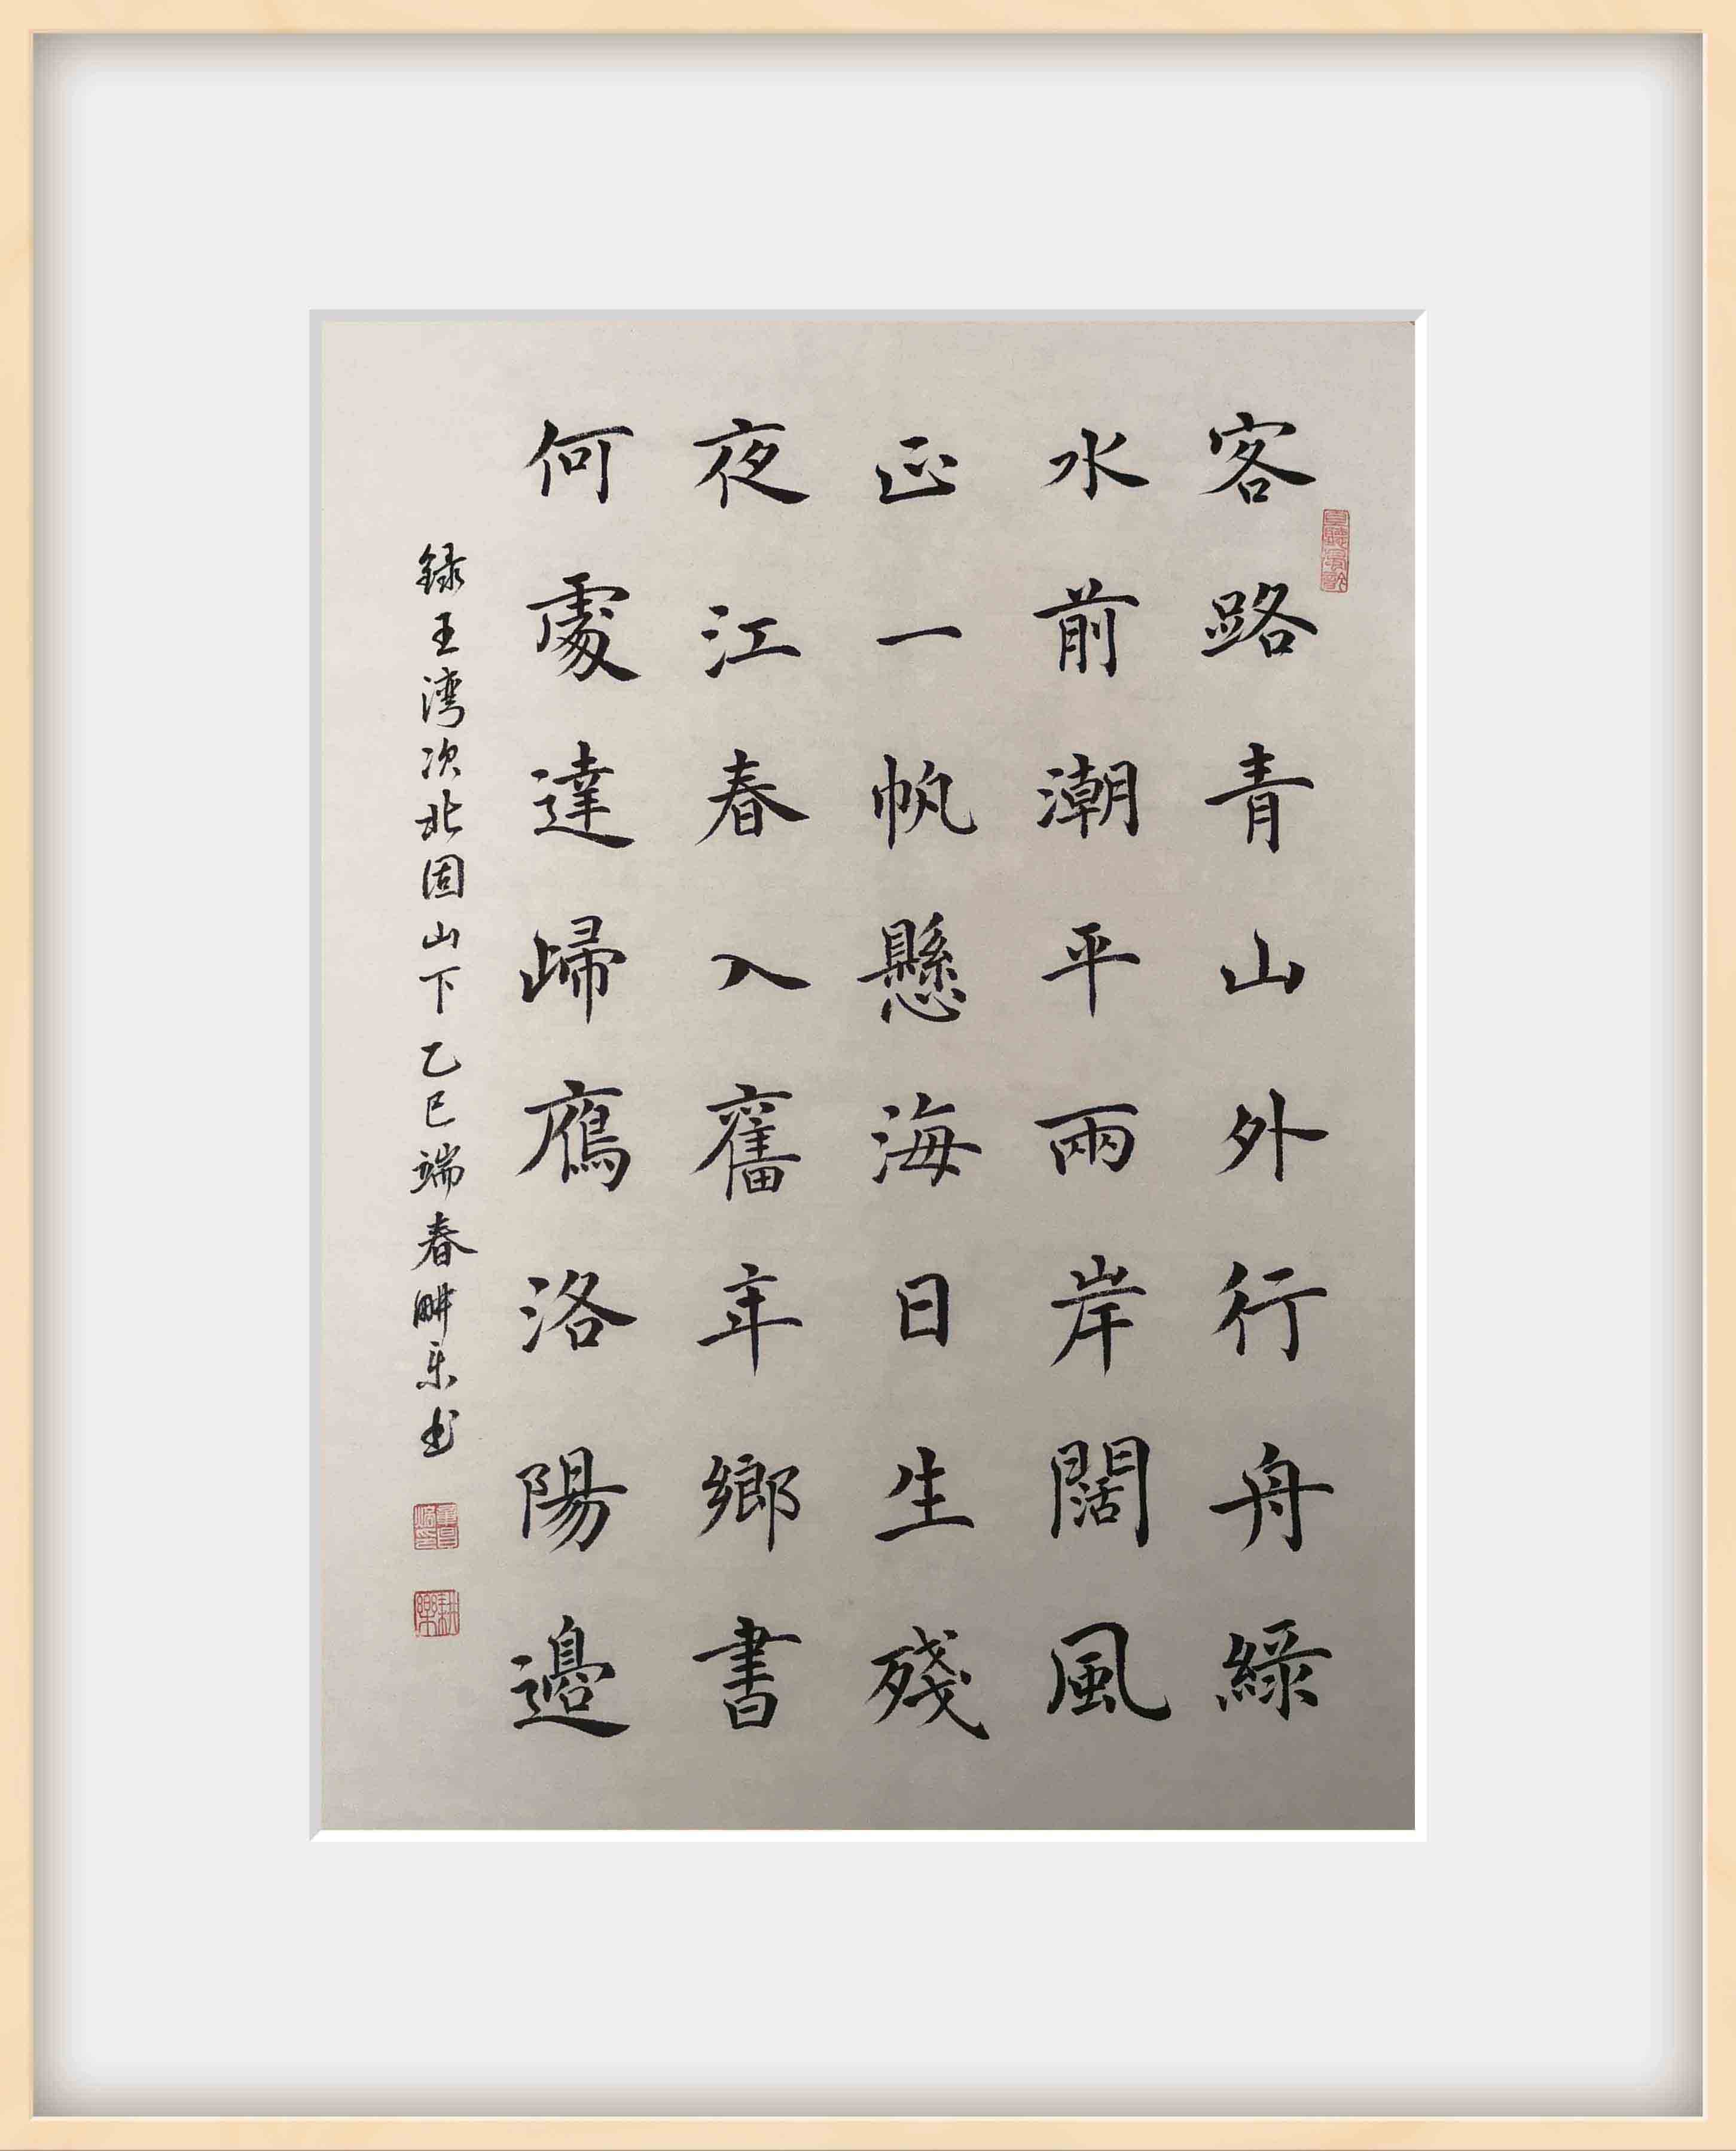 客路青山外行舟綠
水前潮平兩岸闊風
正一帆懸海日生殘
夜江春入舊年鄉書
何處達歸鴈洛陽邊
録王湾次北固山下 乙巳端春畊乐书
耕樂